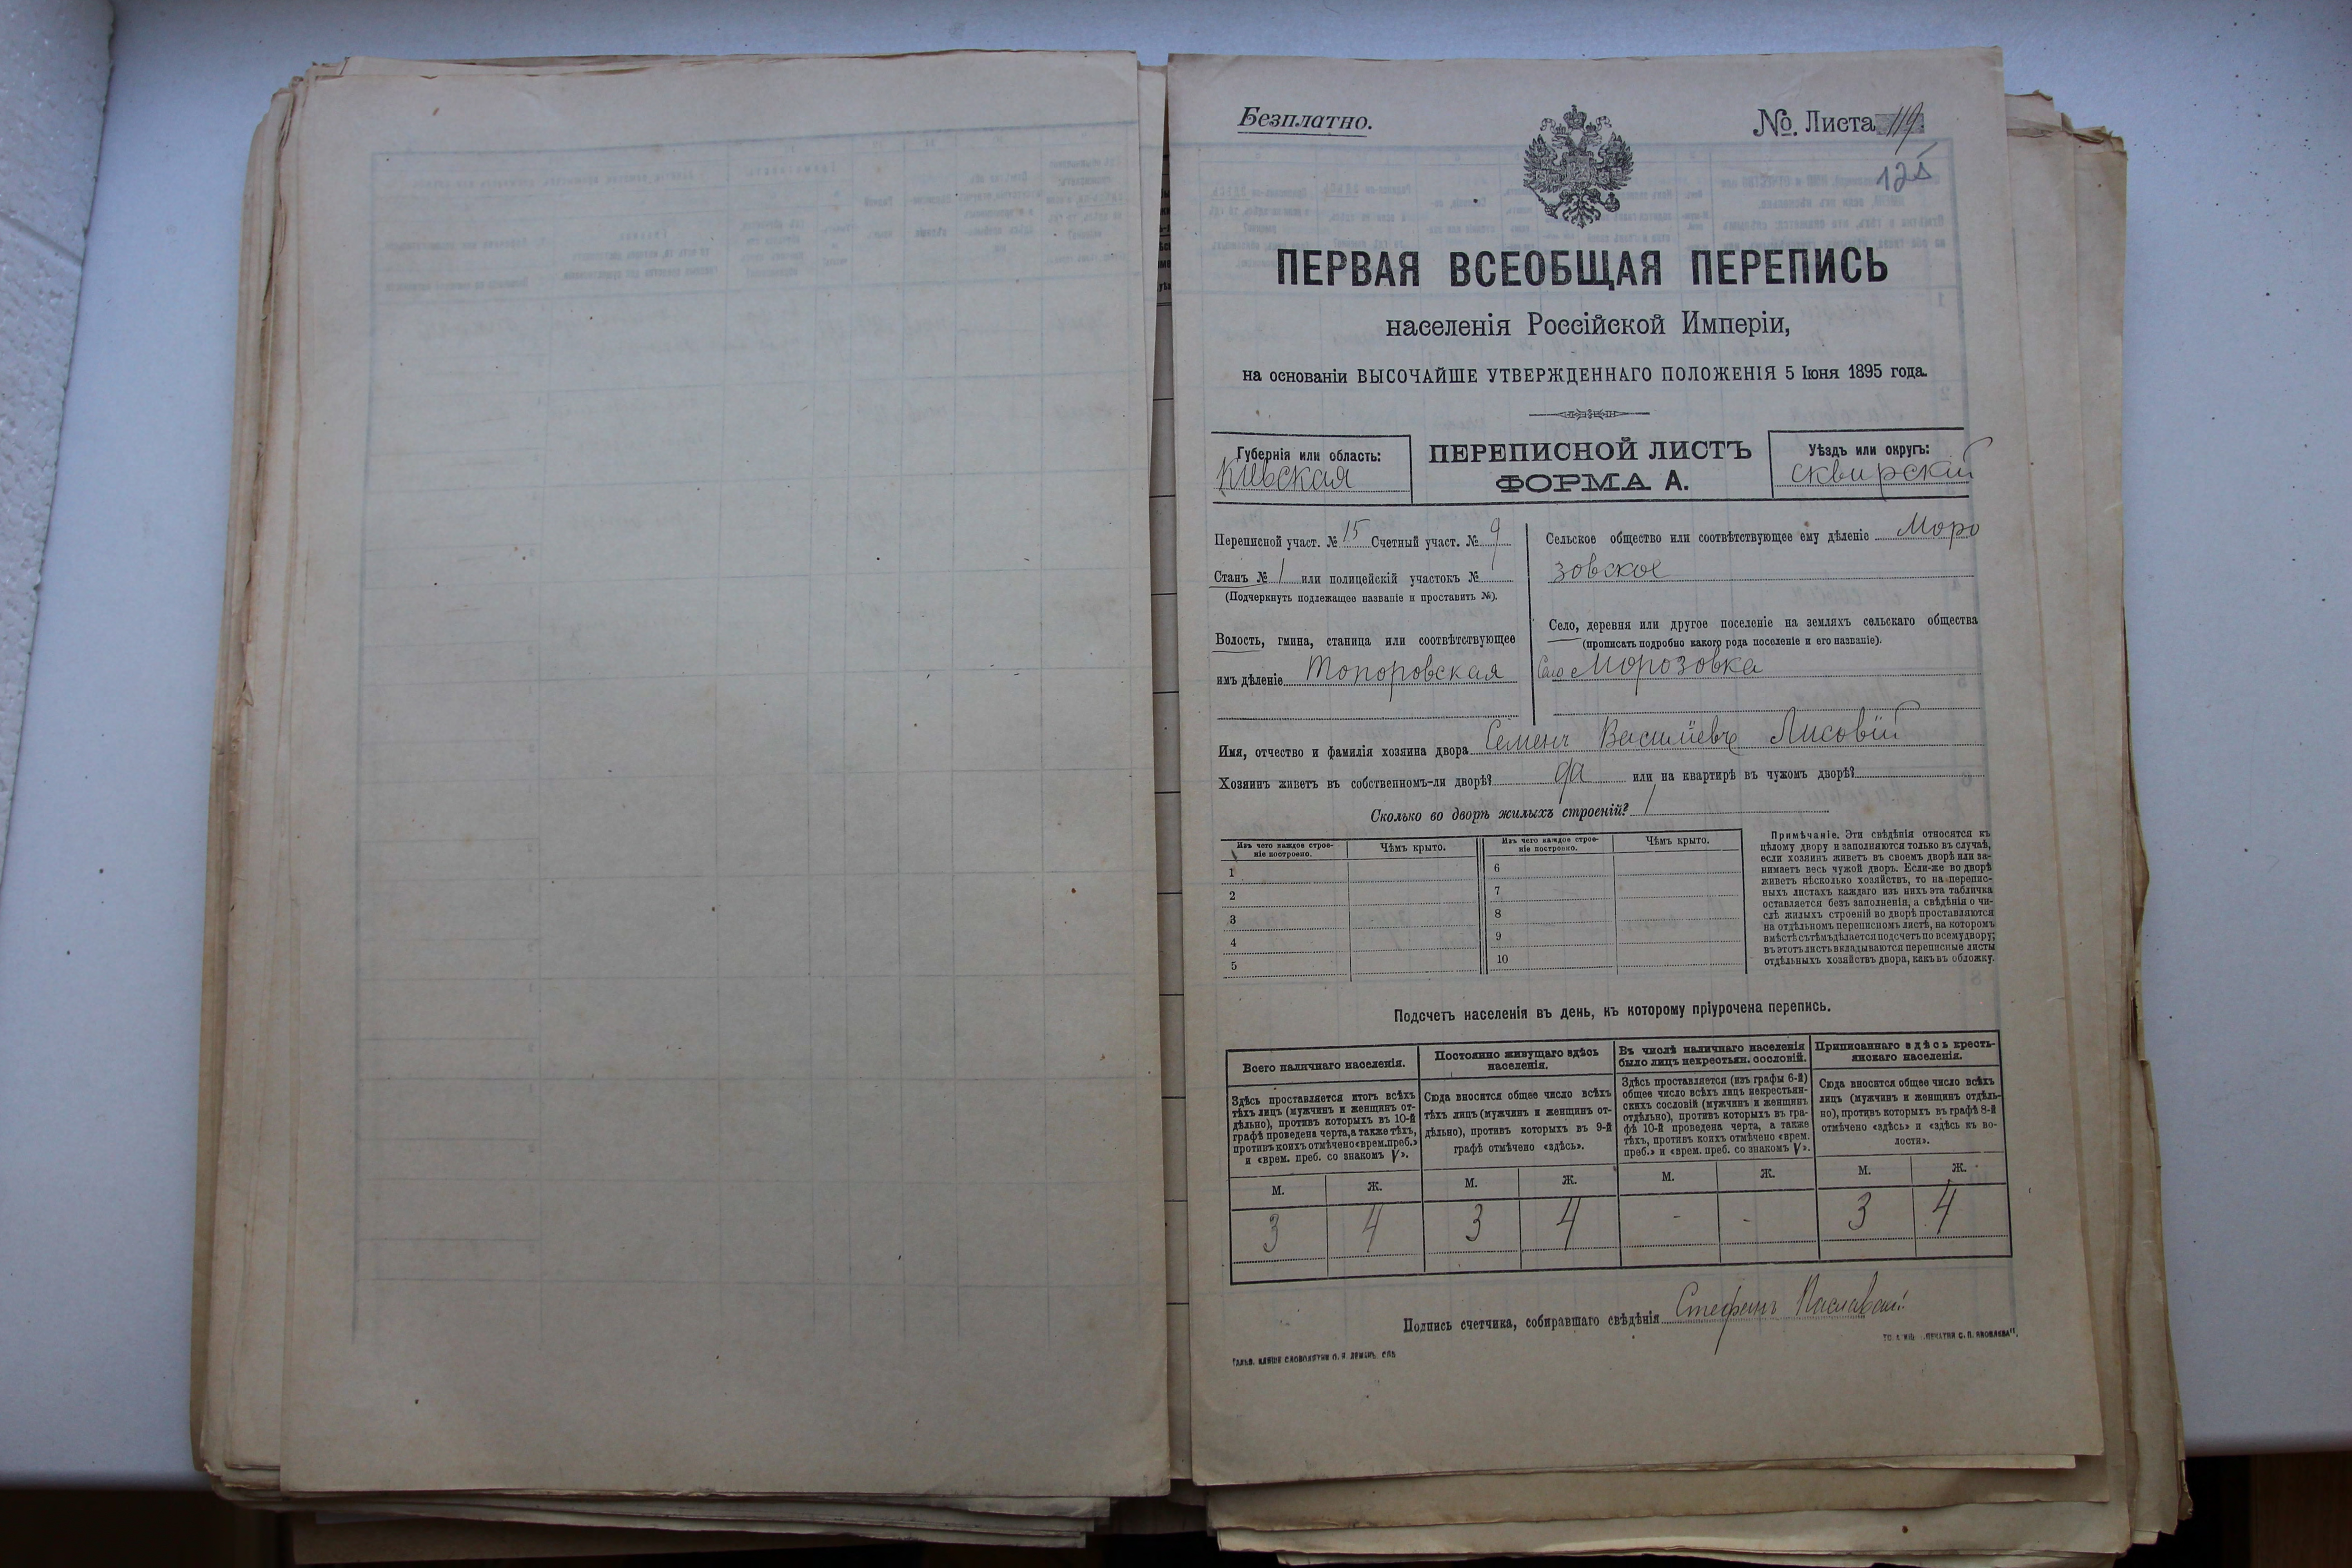 Безплатно.
№. Листа 119
125
ПЕРВАЯ ВСЕОБЩАЯ ПЕРЕПИСЬ
населенія Россійской Имперіи,
на основаніи ВЫСОЧАЙШЕ УТВЕРЖДЕННАГО ПОЛОЖЕНІЯ 5 Іюня 1895 года.
Губернія или область:
Кіевская
ПЕРЕПИСНОЙ ЛИСТЪ
ФОРМА А.
Уѣздъ или округъ:
сквирскій
Переписной участ. № 15 Счетный участ. № 9
Станъ № 1 или полицейскій участокъ №
(Подчеркнуть подлежащее названіе и проставить №).
Волость, гмина, станица или соотвѣтствующее
имъ дѣленіе Топоровская
Сельское общество или соотвѣтствующее ему дѣленіе Моро
зовское
Село, деревня или другое поселеніе на земляхъ сельскаго общества
(прописать подробно какого рода поселеніе и его названіе).
Село Морозовка
Имя, отчество и фамилія хозяина двора Семенъ Васильевъ Лисовій
Хозяинъ живетъ въ собственномъ-ли дворѣ? да или на квартирѣ въ чужомъ дворѣ?
Сколько во дворѣ жилыхъ строеній? 1
Изъ чего каждое строе-
ніе построено.
Чѣмъ крыто.
Изъ чего каждое строе-
ніе построено.
Чѣмъ крыто.
1
2
3
4
5
6
7
8
9
10
Примѣчаніе. Эти свѣдѣнія относятся къ
цѣлому двору и заполняются только въ случаѣ,
если хозяинъ живетъ въ своемъ дворѣ или за-
нимаетъ весь чужой дворъ. Если-же во дворѣ
живетъ нѣсколько хозяйствъ, то на перепис-
ныхъ листахъ каждаго изъ нихъ эта табличка
оставляется безъ заполненія, а свѣдѣнія о чи-
слѣ жилыхъ строеній во дворѣ проставляются
на отдѣльномъ переписномъ листѣ, на которомъ
вмѣстѣ съ тѣмъ дѣлается подсчетъ по всему двору;
въ этотъ листъ вкладываются переписные листы
отдѣльныхъ хозяйствъ двора, какъ въ обложку.
Подсчетъ населенія въ день, къ которому пріурочена перепись.
Всего наличнаго населенія.
Здѣсь проставляется итогъ всѣхъ
тѣхъ лицъ (мужчинъ и женщинъ от-
дѣльно), противъ которыхъ въ 10-й
графѣ проведена черта, а также тѣхъ,
противъ коихъ отмѣчено «врем. преб.»
и «врем. преб. со знакомъ V».
Постоянно живущаго здѣсь
населенія.
Сюда вносится общее число всѣхъ
тѣхъ лицъ (мужчинъ и женщинъ от-
дѣльно), противъ которыхъ въ 9-й
графѣ отмѣчено «здѣсь».
Въ числѣ наличнаго населенія
было лицъ некрестьян. сословій.
Здѣсь проставляется (изъ графы 6-й)
общее число всѣхъ лицъ некрестьян-
скихъ сословій (мужчинъ и женщинъ
отдѣльно), противъ которыхъ въ гра-
фѣ 10-й проведена черта, а также
тѣхъ, противъ коихъ отмѣчено «врем.
преб.» и «врем. преб. со знакомъ V».
Приписаннаго здѣсь кресть-
янскаго населенія.
Сюда вносится общее число всѣхъ
лицъ (мужчинъ и женщинъ отдѣль-
но), противъ которыхъ въ графѣ 8-й
отмѣчено «здѣсь» и «здѣсь къ во-
лости».
М. Ж. М. Ж. М. Ж. М. Ж.
3 4 3 4 - - 3 4
Подпись счетчика, собиравшаго свѣдѣнія Стефанъ